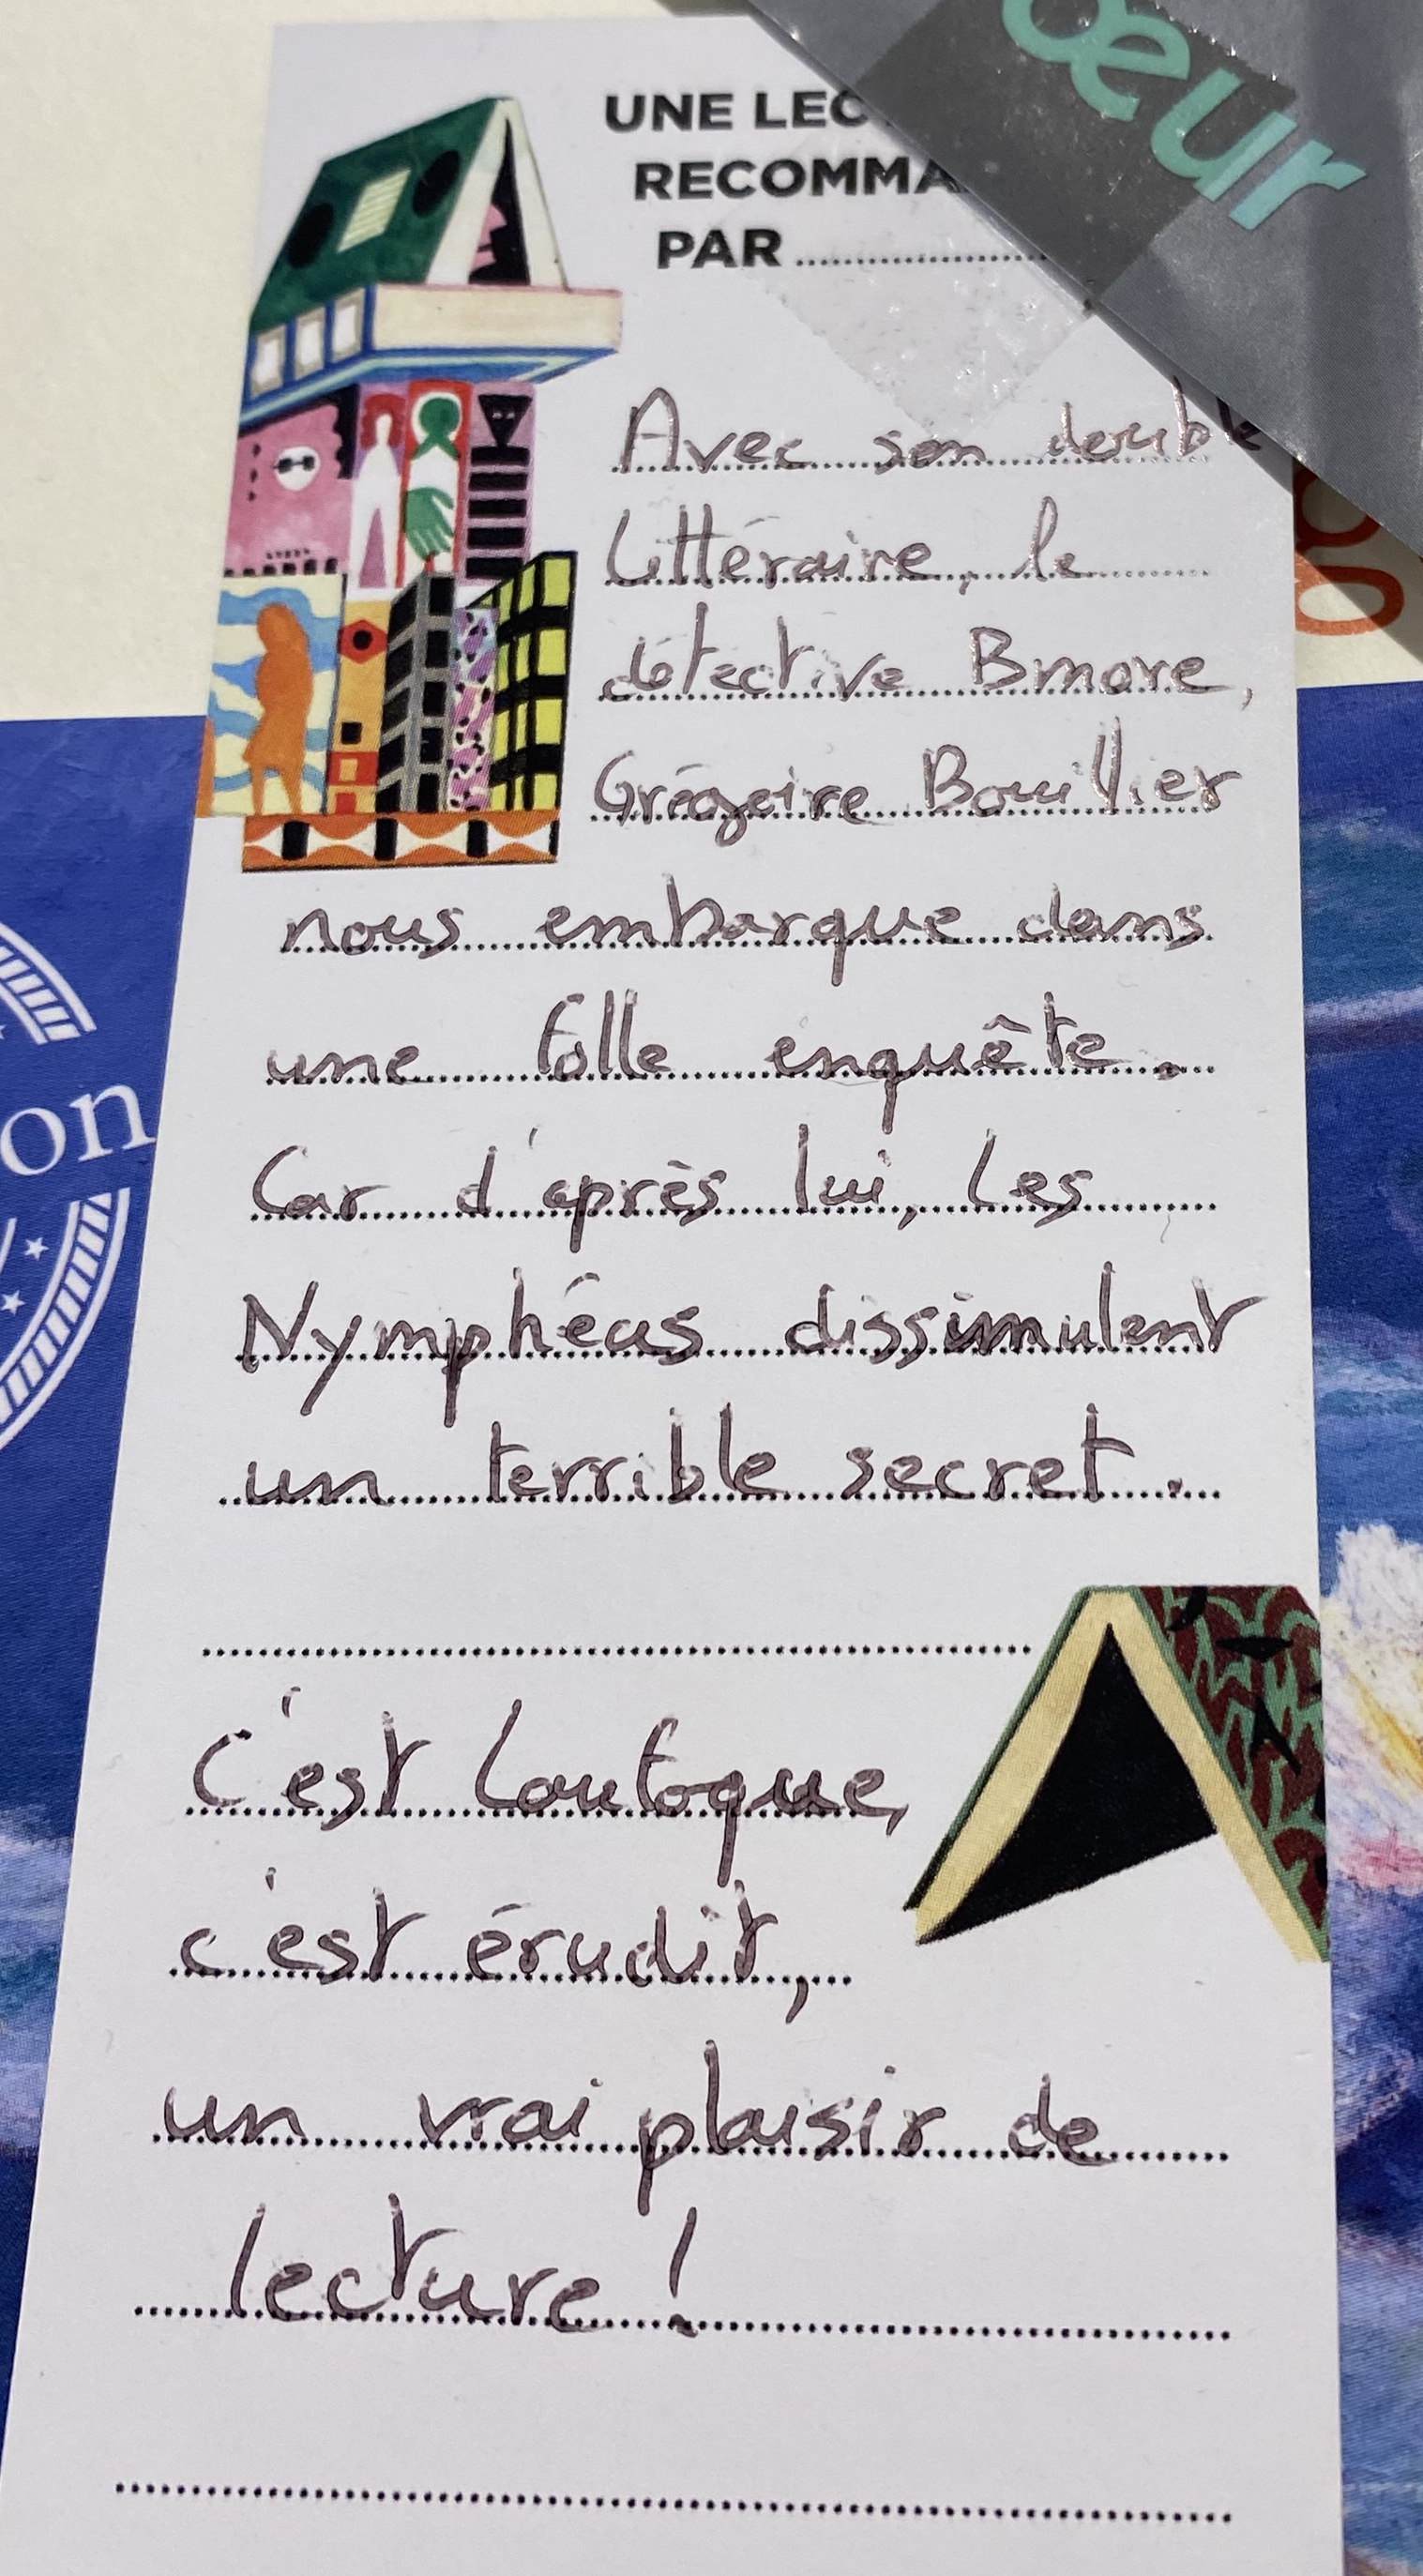 œur
UNE LEC
RECOMMA
PAR
Avec son double
littéraire, le
détective Bmore,
Grégoire Bouillier
nous embarque dans
une folle enquête.
Car d'après lui, les
Nymphéas dissimulent
un terrible secret.
C'est loufoque,
c'est érudit,
un vrai plaisir de
lecture !
on